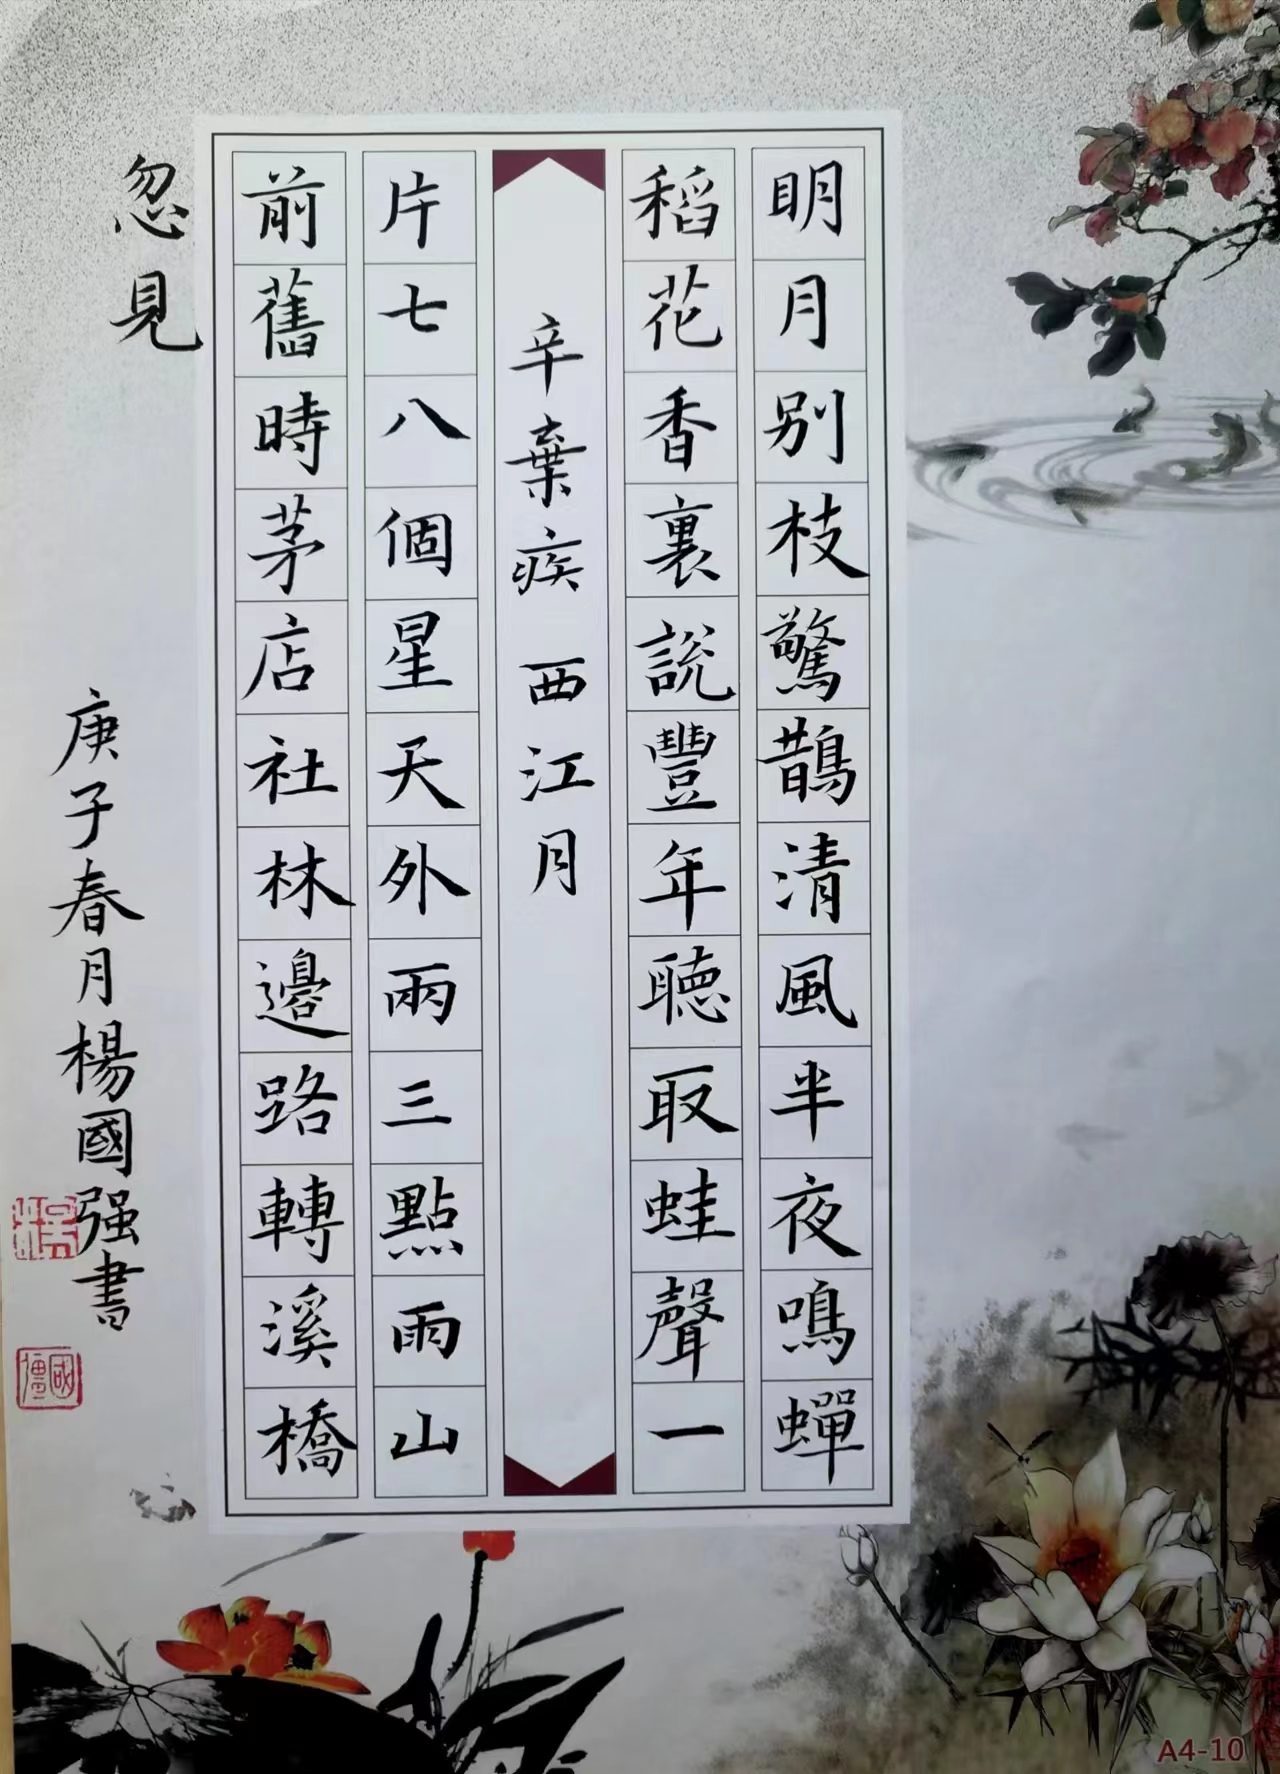 明月别枝驚鵲清風半夜鳴蟬
稻花香裏説豐年聽取蛙聲一
辛棄疾 西江月
片七八個星天外兩三點雨山
前舊時茅店社林邊路轉溪橋
忽見
庚子春月楊國强書
A4-10